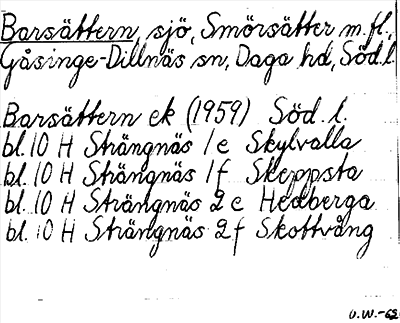 Barsättern, sjö, Smörsätter m.fl.,
Gåsinge-Dillnäs sn, Daga hd, Södl.
Barsättern ek (1959) Söd. l.
bl. 10 H Strängnäs 1e Skylvalla
bl. 10 H Strängnäs 1f Skeppsta
bl. 10 H Strängnäs 2e Hedberga
bl. 10 H Strängnäs 2f Skottvång
U.W.-65